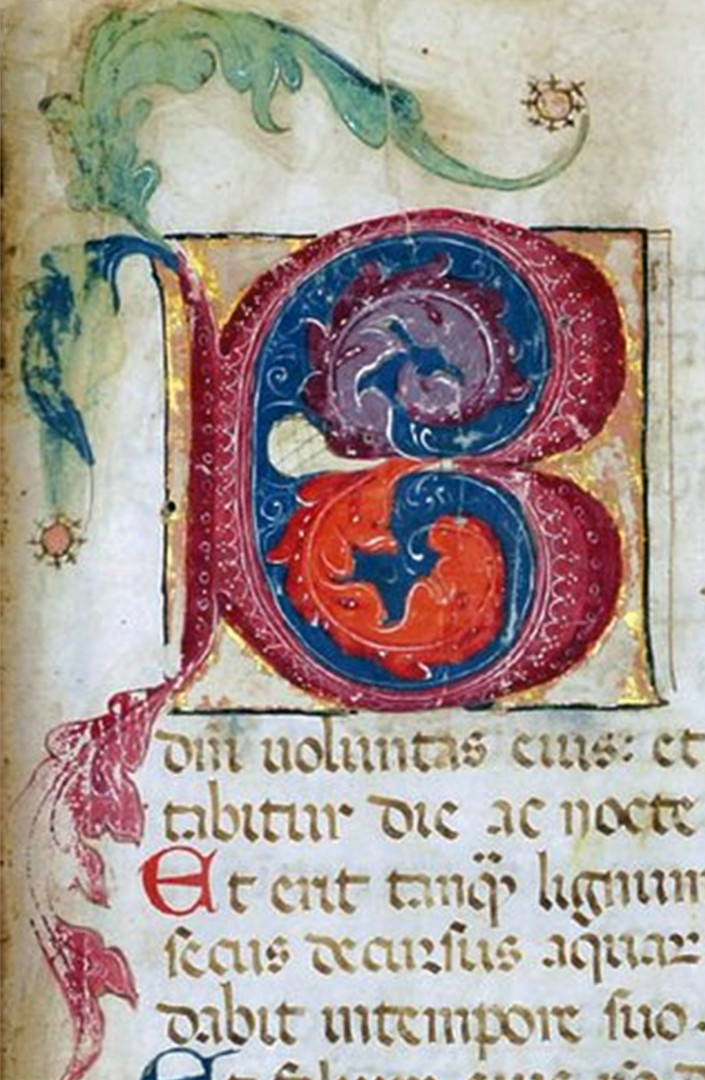 B
dñi uoluntas eius: et
tabitur die ac nocte
Et erit tanq̃ lignum
secus decursus aquaꝝ
dabit intempore suo.
Et folium eius